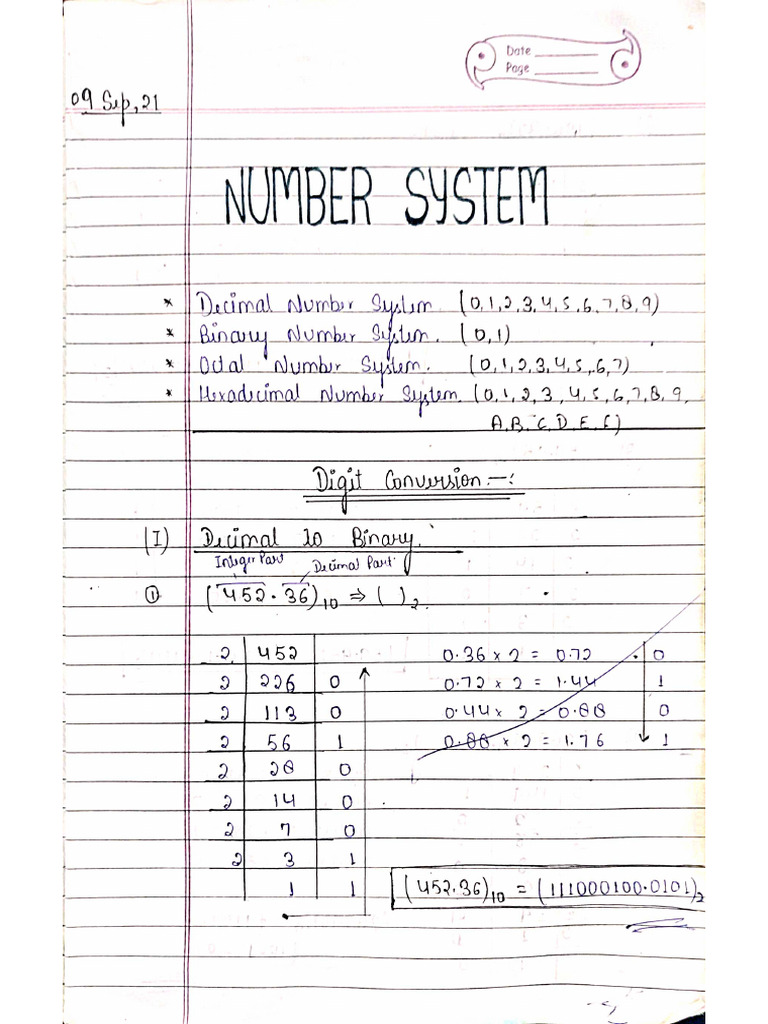 Date
Page
09 Sep, 21
NUMBER SYSTEM
* Decimal Number System (0,1,2,3,4,5,6,7,8,9)
* Binary Number System. (0,1)
* Octal Number System. (0,1,2,3,4,5,6,7)
* Hexadecimal Number System. (0,1,2,3,4,5,6,7,8,9,
A,B,C,D,E,F)
Digit Conversion :-
(I) Decimal to Binary.
Integer Part Decimal Part
① (452.36)₁₀ ⇒ ( )₂.
2 452 0.36 × 2 = 0.72 0
2 226 0 0.72 × 2 = 1.44 1
2 113 0 0.44 × 2 = 0.88 0
2 56 1 0.88 × 2 = 1.76 1
2 28 0
2 14 0
2 7 0
2 3 1
1 1
(452.36)₁₀ = (111000100.0101)₂